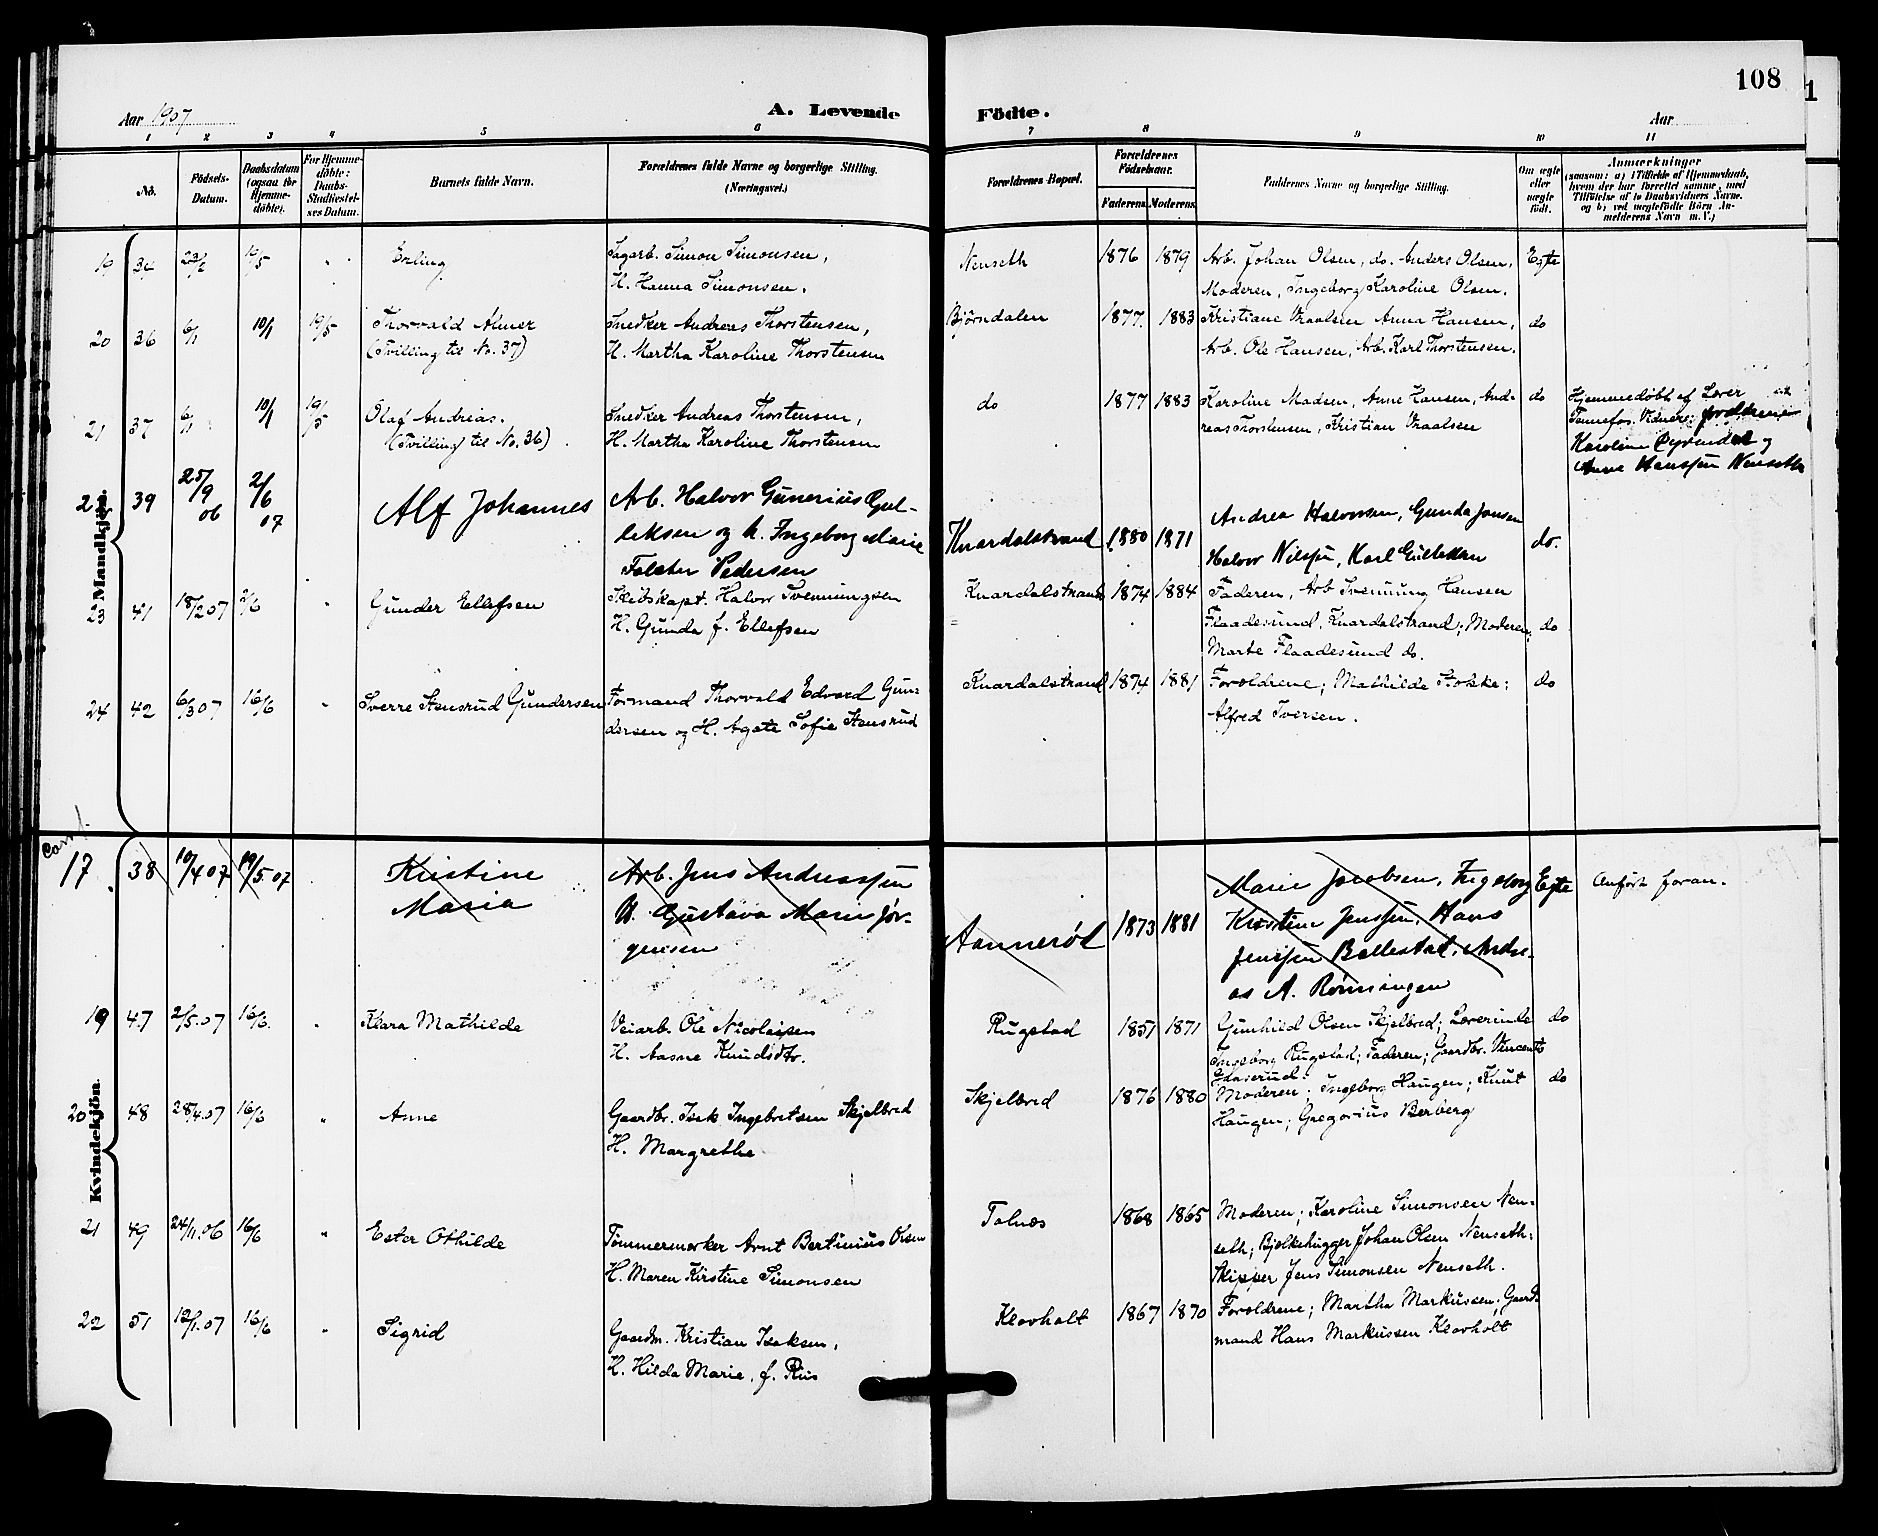 108
1
Aar 1907
A. Levende
Födte.
Aar
1 2 3 4 5 6 7 8 9 10 11
No.
Födsels-
Datum.
Daabsdatum
(ogsaa for
Hjemme-
döbte).
For Hjemme-
döbte:
Daabs-
Stadfæstel-
ses Datum.
Barnets fulde Navn.
Forældrenes fulde Navne og borgerlige Stilling.
(Næringsvei.)
Forældrenes Bopæl.
Forældrenes
Födselsaar.
Faderens. Moderens.
Faddernes Navne og borgerlige Stilling.
Om ægte
eller
uægte
födt.
Anmærkninger
(saasom: a) i Tilfælde af Hjemmedaab,
hvem der har forrettet samme, med
Tilföielse af to Daabsvidners Navne.
og b) ved uægtefödte Börn An-
melderens Navn m. V.)
Mandkjön.
19 34 23/2 19/5 " Erling
Sagarb. Simon Simonsen,
H. Hanna Simonsen.
Nenseth 1876 1879
Arb. Johan Olsen, do. Anders Olsen,
Moderen, Ingeborg Karoline Olsen.
Egte
20 36 6/1 10/1 19/5 Thorvald Almer
(Tvilling til No. 37)
Snedker Andreas Thorstensen,
H. Martha Karoline Thorstensen
Björndalen 1877. 1883
Kristiane Vraalsen Anna Hansen,
Arb. Ole Hansen, Arb. Karl Thorstensen.
do
21 37 6/1 10/1 19/5 Olaf Andrias.
(Tvilling til No. 36)
Snedker Andreas Thorstensen,
H. Martha Karoline Thorstensen
do 1877 1883
Karoline Madsen, Anne Hansen, And-
reas Thorstensen, Kristian Vraalsen
do
Hjemmedøbt af Lærer
Tannefos. Vidner: forældrene
Karoline og
Anne Hanssen Nenseth
22 39 25/9 06 2/6 07 Alf Johannes
Arb. Halvor Gunerius Gul-
leksen og h. Ingeborg Marie
Falster Pedersen
Knardalstrand 1880 1871
Andrea Halvorsen, Gunda Jansen
Halvor Nilssen, Karl Gulleksen
do.
23 41 18/2 07 2/6 " Gunder Ellefsen
Skibskapt. Halvor Svenningsen
H. Gunda f. Ellefsen
Knardalstrand 1874 1884
Faderen, Arb Svenning Hansen
Flaadesund, Knardalstrand; Moderen;
Marte Flaadesund do.
do
24 42 6/3 07 16/6 " Sverre Stensrud Gundersen
Formand Thorvald Edvard Gun-
dersen og H. Agate Sofie Stensrud
Knardalstrand 1874 1881
Forældrene; Mathilde Stokke;
Alfred Iversen.
do
Kvindekjön.
17 38 10/4 07 19/5 07 Kristine
Maria
Arb. Jens Andreassen
H. Gustava Marie Jør-
gensen
Aannerød 1873 1881
Marie Jacobsen, Ingeborg
Kristine Jenssen, Hans
Jenssen Ballestad, Andre-
as A. Rønningen
Egte
Anført foran.
19 47 2/5.07 16/6. " Klara Mathilde
Veiarb. Ole Nicolaisen
H. Aasne Knudsdtr.
Rugstad 1851 1871
Gunhild Olsen Skjelbred; Lærerinde
Ingeborg Rugstad; Faderen; Gaardbr. Vincents
do
20 48 28/4.07 16/6 " Anne
Gaardbr. Isak Ingebretsen Skjelbred
H. Margrethe
Skjelbred 1876 1880
Moderen; Ingeborg Haugen; Knut
Haugen; Gregorius Berberg
do
21 49 24/11.06 16/6 " Ester Othilde
Tømmermerker Arnt Bertinius Olsen
H. Maren Kirstine Simonsen
Tolnæs 1868 1865
Moderen; Karoline Simonsen Nen-
seth; Bjelkehugger Johan Olsen Nenseth;
Skipper Jens Simonsen Nenseth.
22 51 12/1.07 16/6 " Sigrid
Gaardm. Kristian Isaksen,
H. Hilda Marie, f. Riis
Klovholt 1867 1870
Forældrene; Martha Markussen, Gaard-
mand Hans Markussen Klovholt